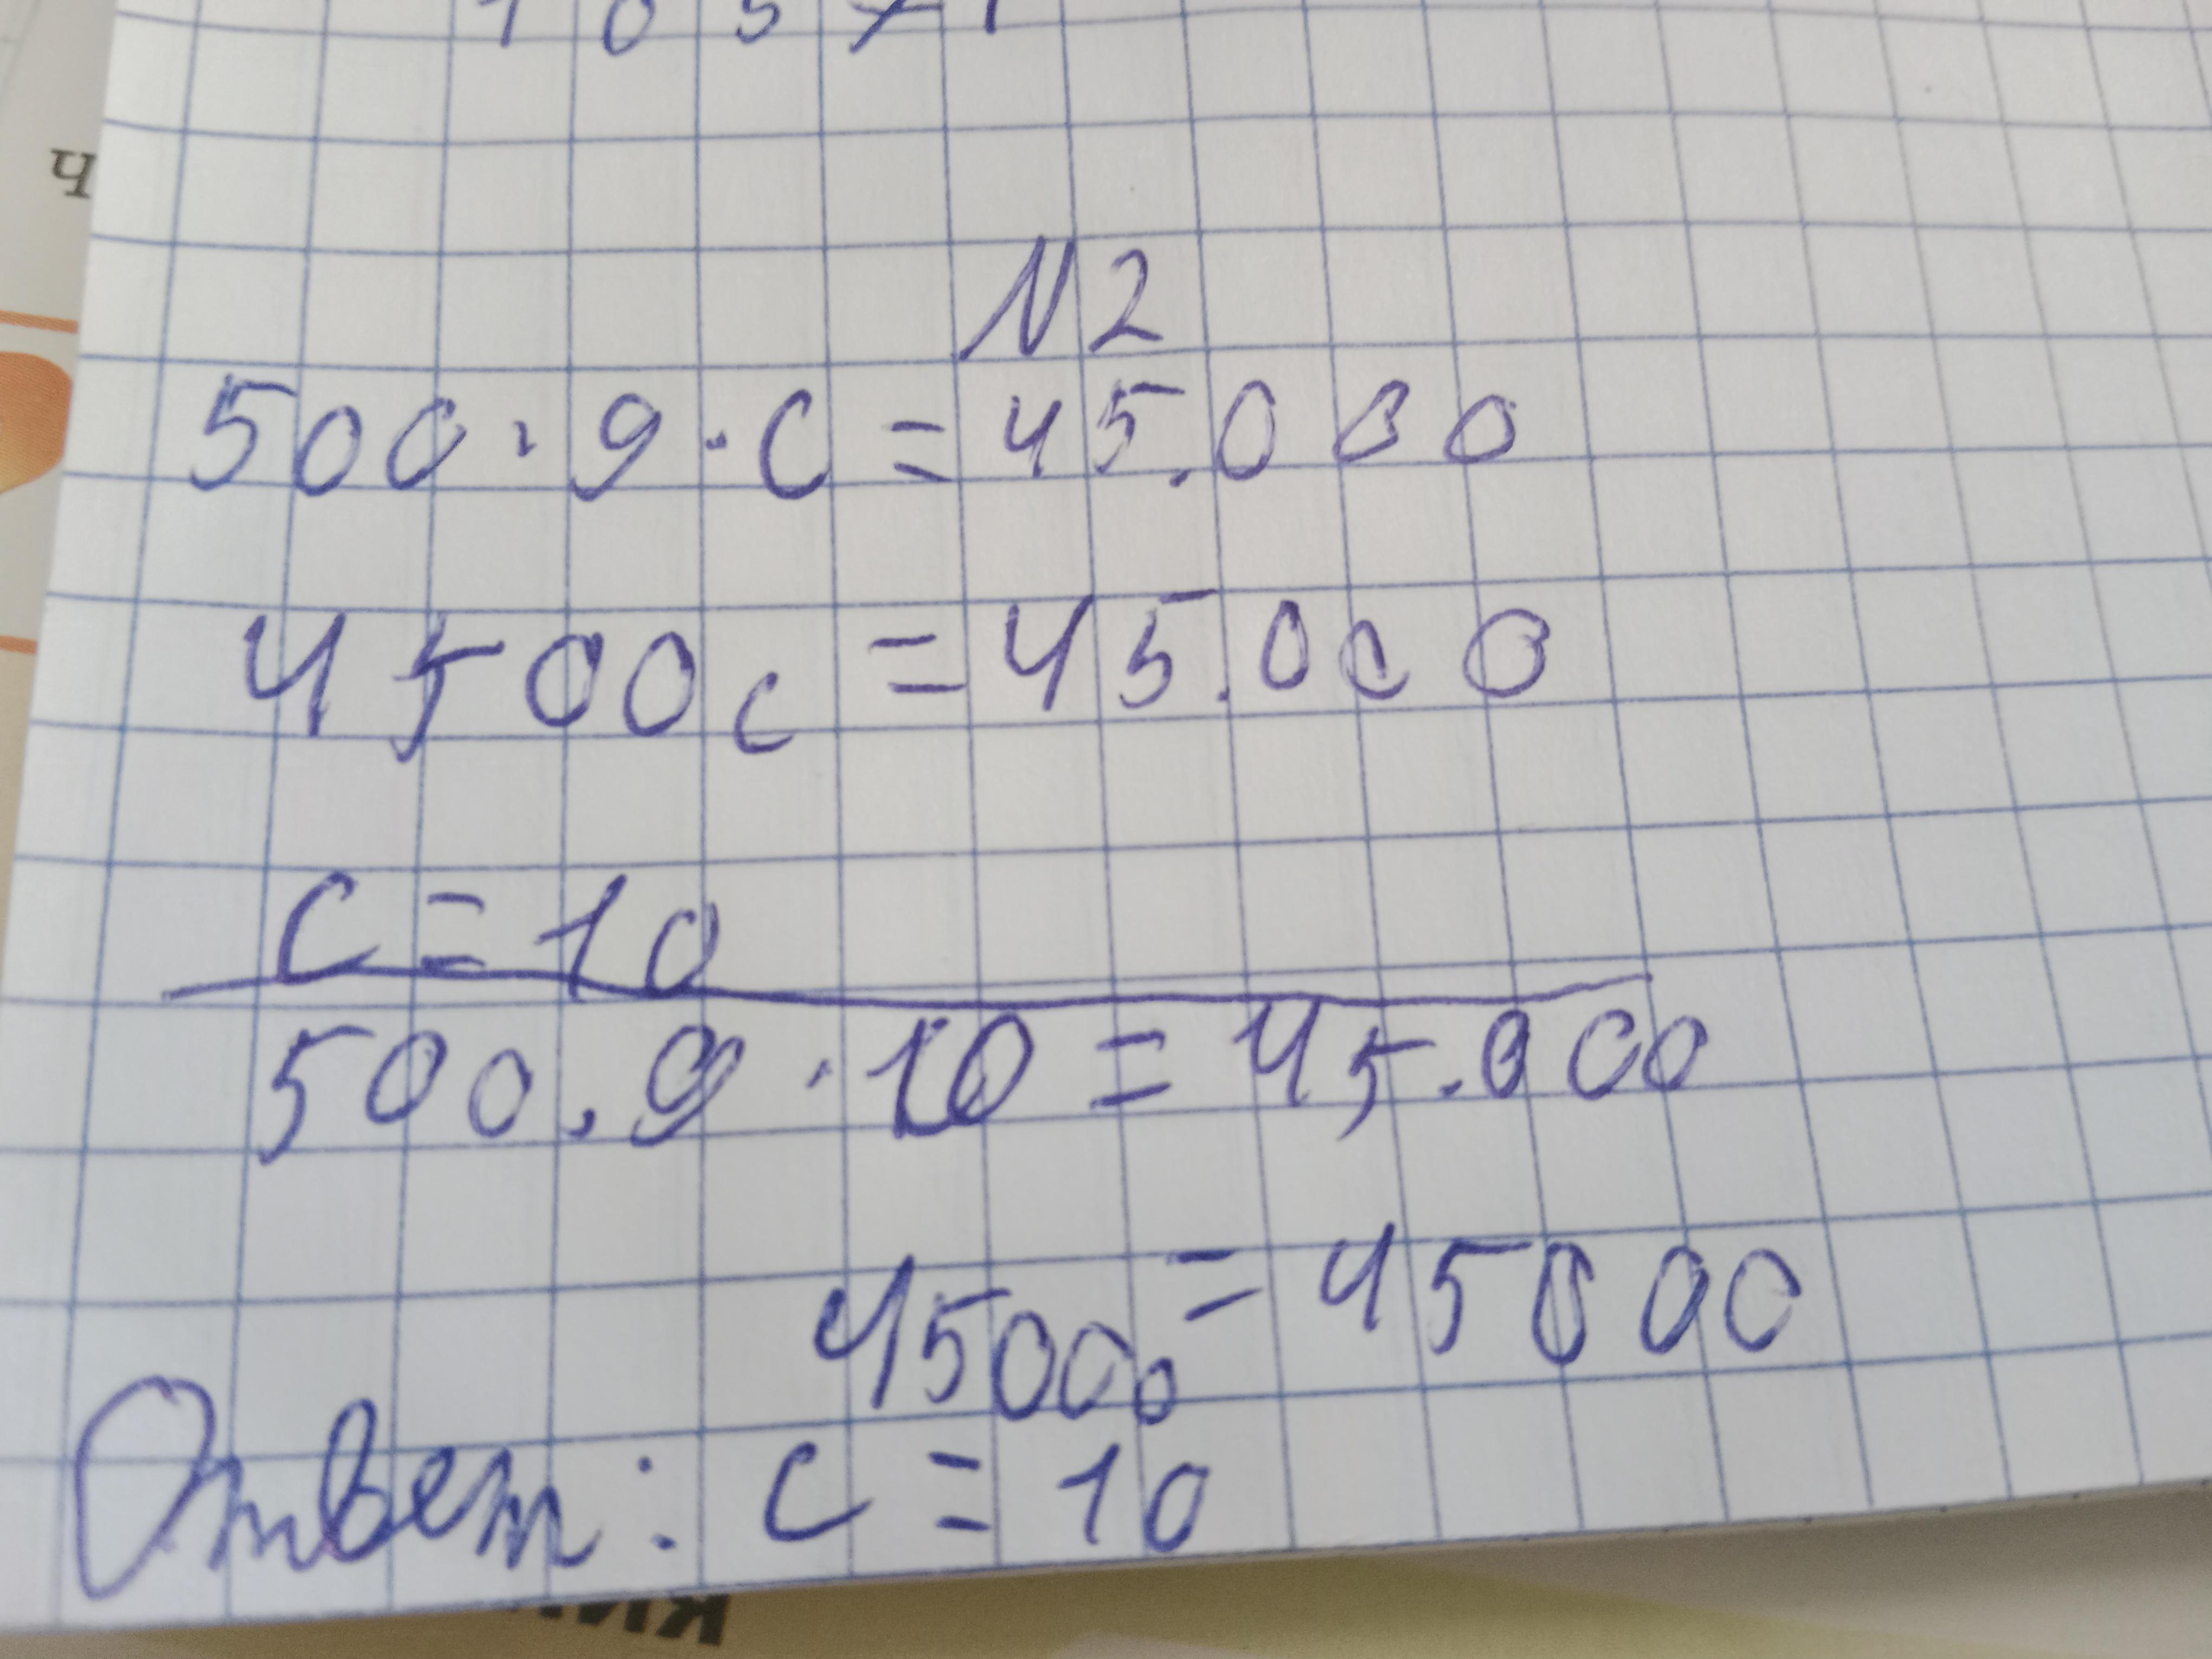 ч
N2
500·9·C=45.000
4500c=45.000
C=10
500.9·10=45.000
45000=45000
Ответ: c=10